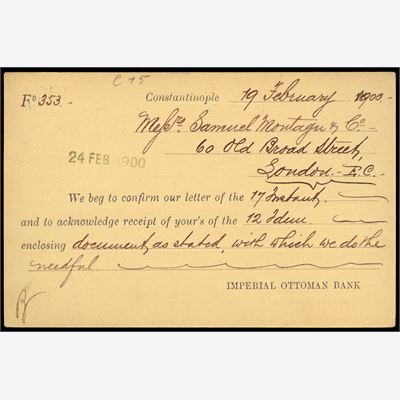 C 15
Fo 353.- Constantinople 19 February 1900-
Messrs. Samuel Montagu & Co-
60 Old Broad Street,
24 FEB 1900
London.- E.C.-
We beg to confirm our letter of the 17 Instant,
and to acknowledge receipt of your's of the 12 Idem.
enclosing document, as stated, with which we do the
needful.
IMPERIAL OTTOMAN BANK